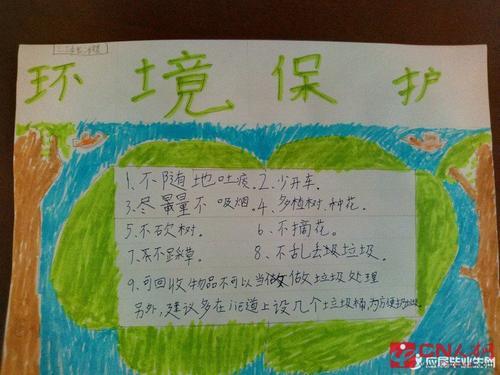 环境保护
1、不随地吐痰。2、少开车。
3、尽量不吸烟。4、多植树、种花。
5、不砍树。6、不摘花。
7、不踩草。8、不乱丢垃圾。
9、可回收物品不可以当做垃圾处理
另外，建议多在 道上设几个垃圾桶，为方便扔垃圾。
应届毕业生网